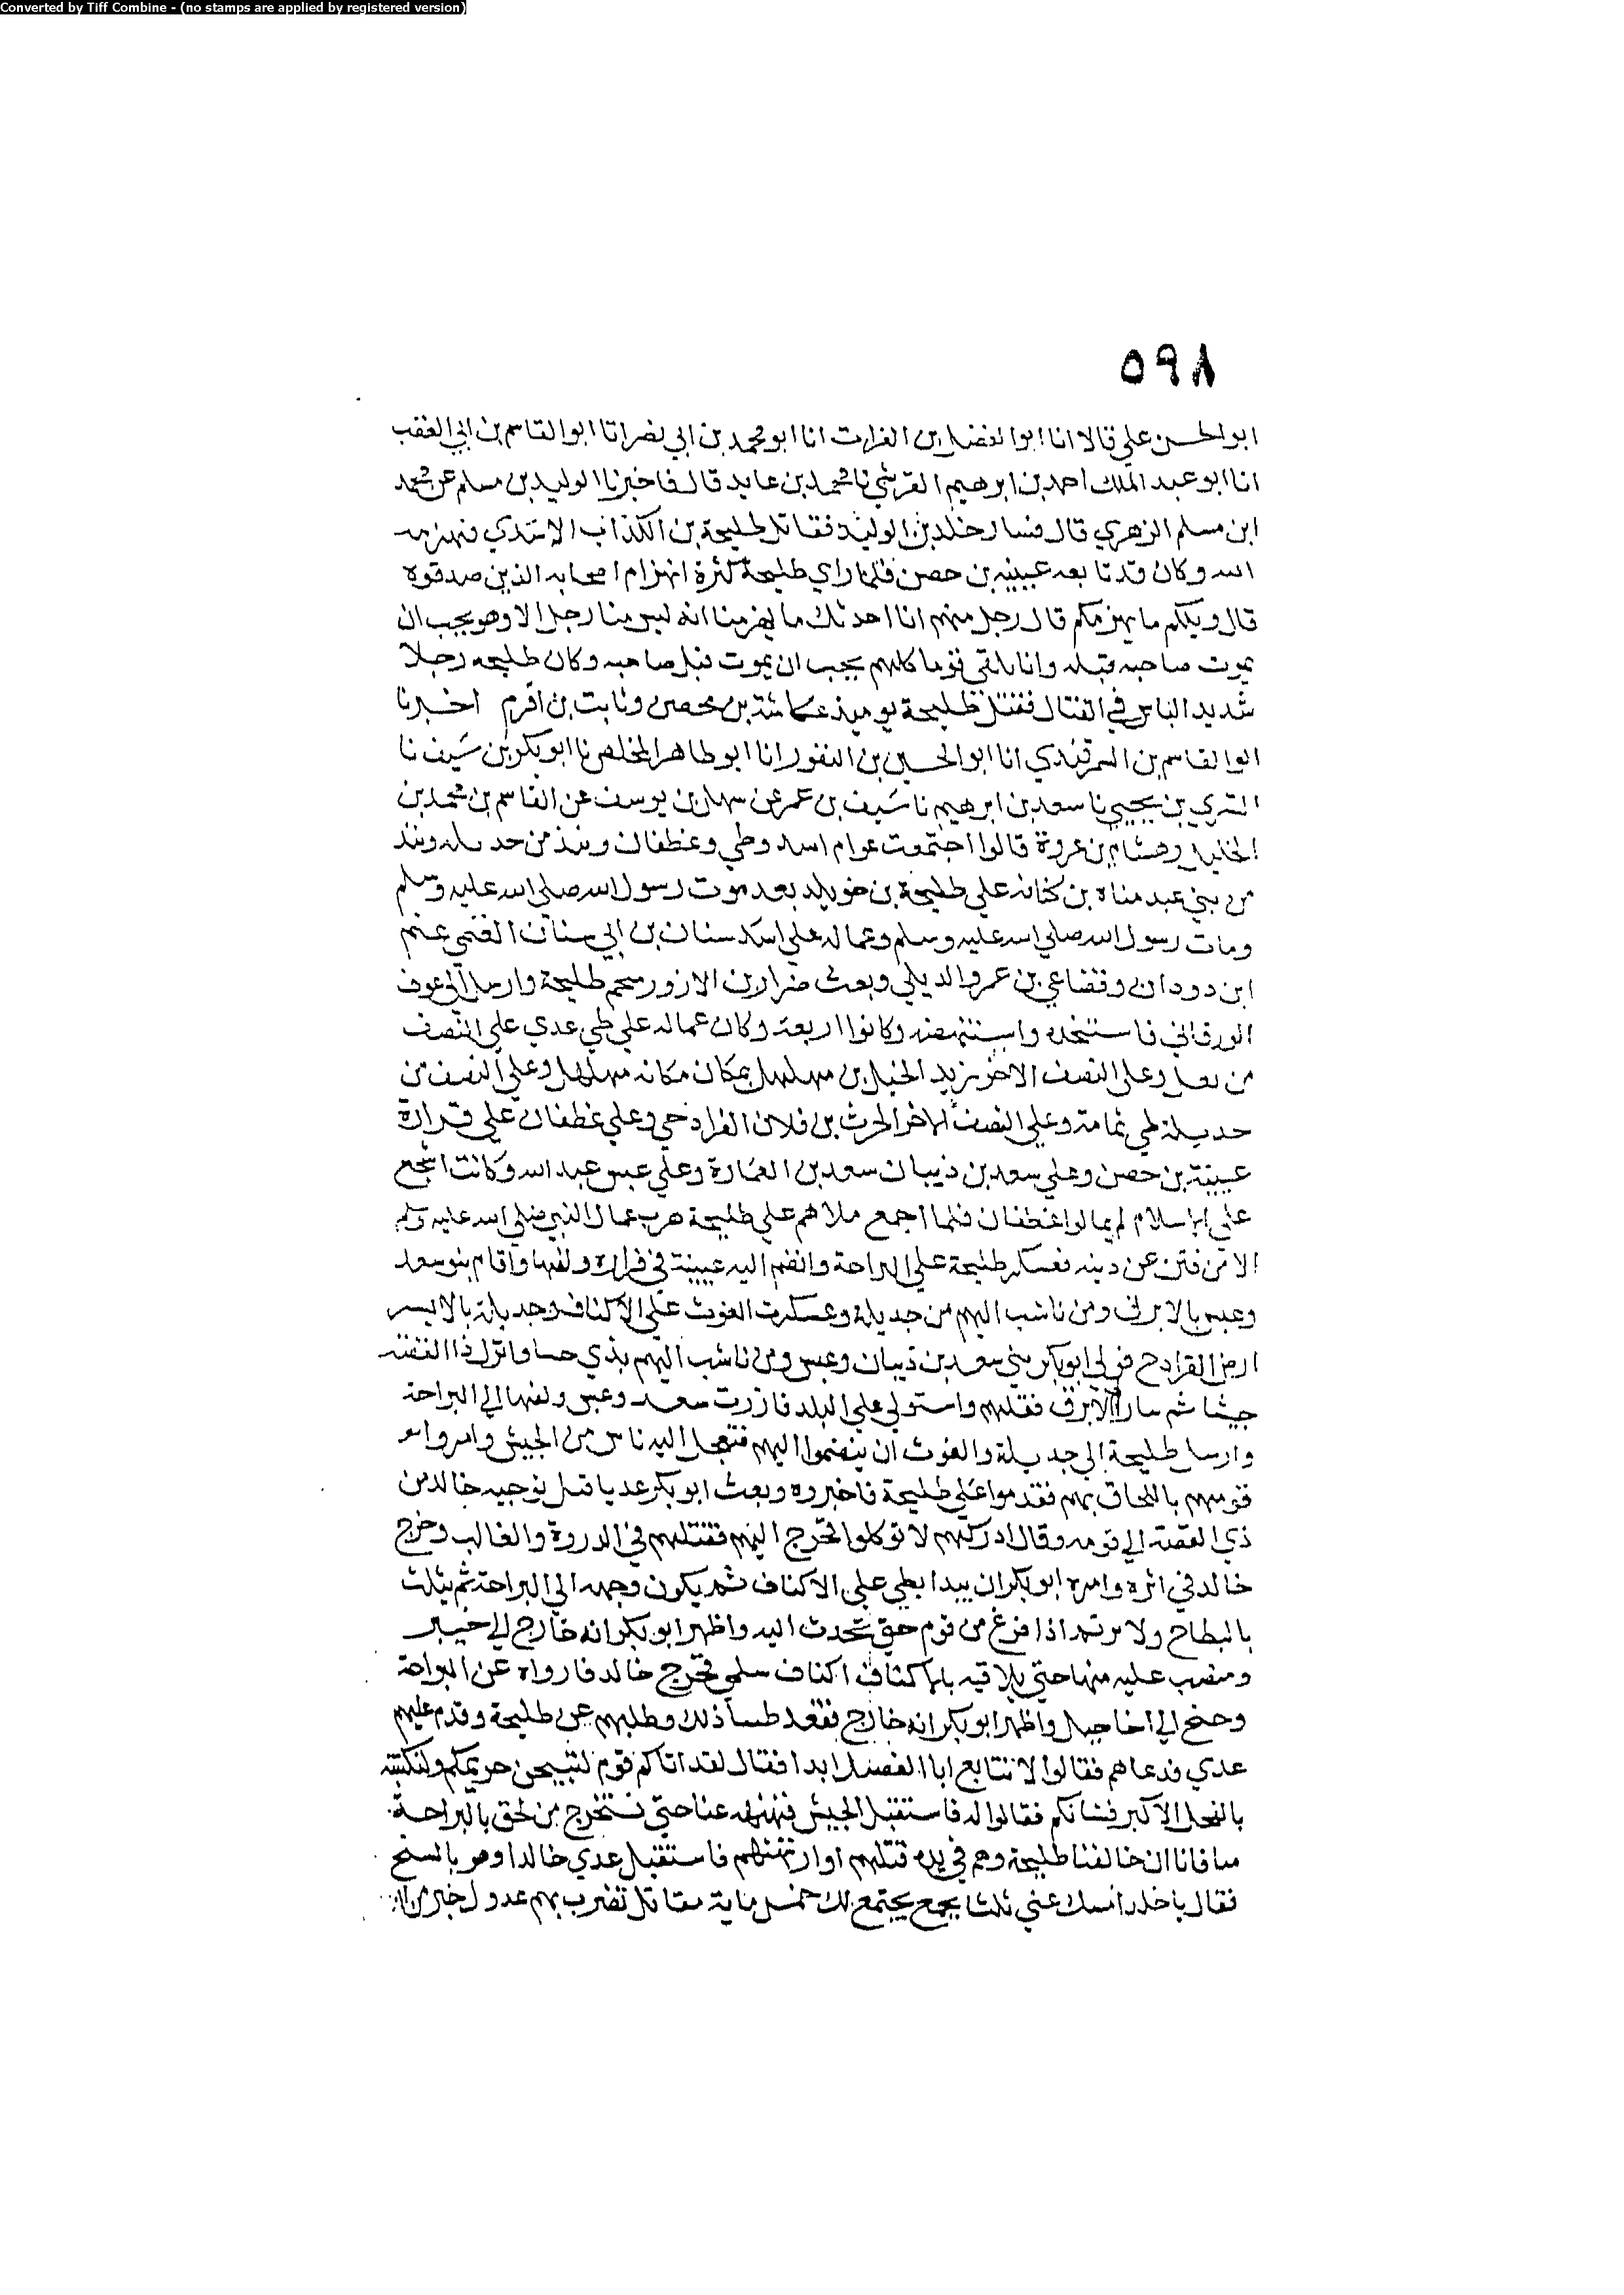 Converted by Tiff Combine - (no stamps are applied by registered version)
٥٩٨
ابو الحسن علي قالا انا ابو الفضل بن الفرات انا ابو محمد بن ابي نصر انا ابو القاسم بن ابي العقب
انا ابو عبد الملك احمد بن ابرهيم القرشي نا محمد بن عايد قال فاخبرنا الوليد بن مسلم عن محمد
ابن مسلم الزهري قال فسار خلد بن الوليد فقاتل طليحة بن الكذاب الاسدي فهزمه
الله وكان قد تابعه عيينه بن حصن فلما راي طليحة كثرة انهزام اصحابه الذين صدقوه
قال ويلكم ما يهزمكم قال رجل منهم انا احدثك ما يهزمنا انه ليس منا رجل الا وهو يحب ان
يموت صاحبه قبله وانا نلقي قوما كلهم يحب ان يموت قبل صاحبه وكان طليحه رجلا
شديد الباس في القتال فقتل طليحة يوميذ عكاشة بن محصن وثابت بن اقرم اخبرنا
ابو القاسم بن السمرقندي انا ابو الحسين بن النقور انا ابو طاهر المخلص نا ابو بكر بن سيف نا
السري بن يحيي نا سعد بن ابرهيم نا سيف بن عمر عن سهل بن يوسف عن القاسم بن محمد بن
الخليل وهشام بن عروة قالوا اجتمعت عوام اسد وطي وغطفان ونبذ من حديله ونبذ
من بني عبد مناه بن كنانه علي طليحة بن خويلد بعد موت رسول الله صلي الله عليه وسلم
ومات رسول الله صلي الله عليه وسلم وعماله علي اسد سنان بن ابي سنان الغنمي غنم
ابن دودان وقضاعي بن عمرو الديلي وبعث ضرار بن الازور طليحة وارسل الي عوف
الورقاني فاستنجده واستنهضه وكانوا اربعة وكان عماله علي طي عدي علي النصف
من وعلي النصف الاخر يزيد الخيل بن مهلهل بمكان مكانه مهلهل وعلي النصف من
حديلة طي ثمامة وعلي النصف الاخر الحرث بن فلان القرادحي وعلي غطفان علي فزارة
عيينة بن حصن وعلي سعد بن ذبيان سعد بن العمارة وعلي عبس عبد الله وكانت اشجع
علي الاسلام لم يمالوا غطفان فلما اجمع ملاهم علي طليحة هرب عمال النبي صلي الله عليه وسلم
الا من فتن عن دينه فعسكر طليحة علي البراحة وانضم اليه عيينة في فزاره ولفها واقام بنو سعد
وعبس بالابرق ومن ناشب اليهم من جديلة وعسكرت الغوث علي الاكناف وجديلة بالايسر
ارض القرادح فولي ابو بكر بني سعد بن ذبيان وعبس ومن ناشب اليهم بذي حسا وانزل ذا القصة
جيشا ثم سار الي الابرق فقتلهم واستولي علي البلد فازرت سعد وعبس ولفها الي البراحة
وارسل طليحة الي جديلة والغوث ان ينضموا اليهم فتعجل اليه ناس من الجيش وامروا
قومهم باللحاق بهم فقدموا علي طليحة فاخبروه وبعث ابو بكر عديا قبل توجيه خالد من
ذي القصة الي قومه وقال ادركهم لا توكلوا فخرج اليهم فقتلهم في الدروة والغالب وخرج
خالد في اثره وامره ابو بكر ان يبدا بطي علي الاكناف ثم يكون وجهه الي البراحة ثم يثلث
بالبطاح ولا اذا فرغ من قوم حتي يحدث اليه واظهر ابو بكر انه خارج الي خيبر
ومنصب عليه منها حتي يلاقيه بالاكناف اكناف سلمي فخرج خالد فارواه عن البراحة
وجنح الي اجا جبل واظهر ابو بكر انه خارج فقعد طيا ذلك وطلبهم عن طليحة وقدم عليهم
عدي فدعاهم فقالوا لا نتابع ابا الفضل ابدا فقال لقد اتاكم قوم لتبيحن حريمكم ولتكننه
بالفحل الاكبر فشانكم فقالوا له فاستقبل الجيش فنهنهه عنا حتي نستخرج من لحق بالبراحة
منا فانا ان خالفنا طليحة وهم في يده قتلهم او ارتهنهم فاستقبل عدي خالدا وهو بالسنح
فقال يا خلد امسك عني ثلثا يجمع لك خمس ماية مقاتل تضرب بهم عدول خير من ان